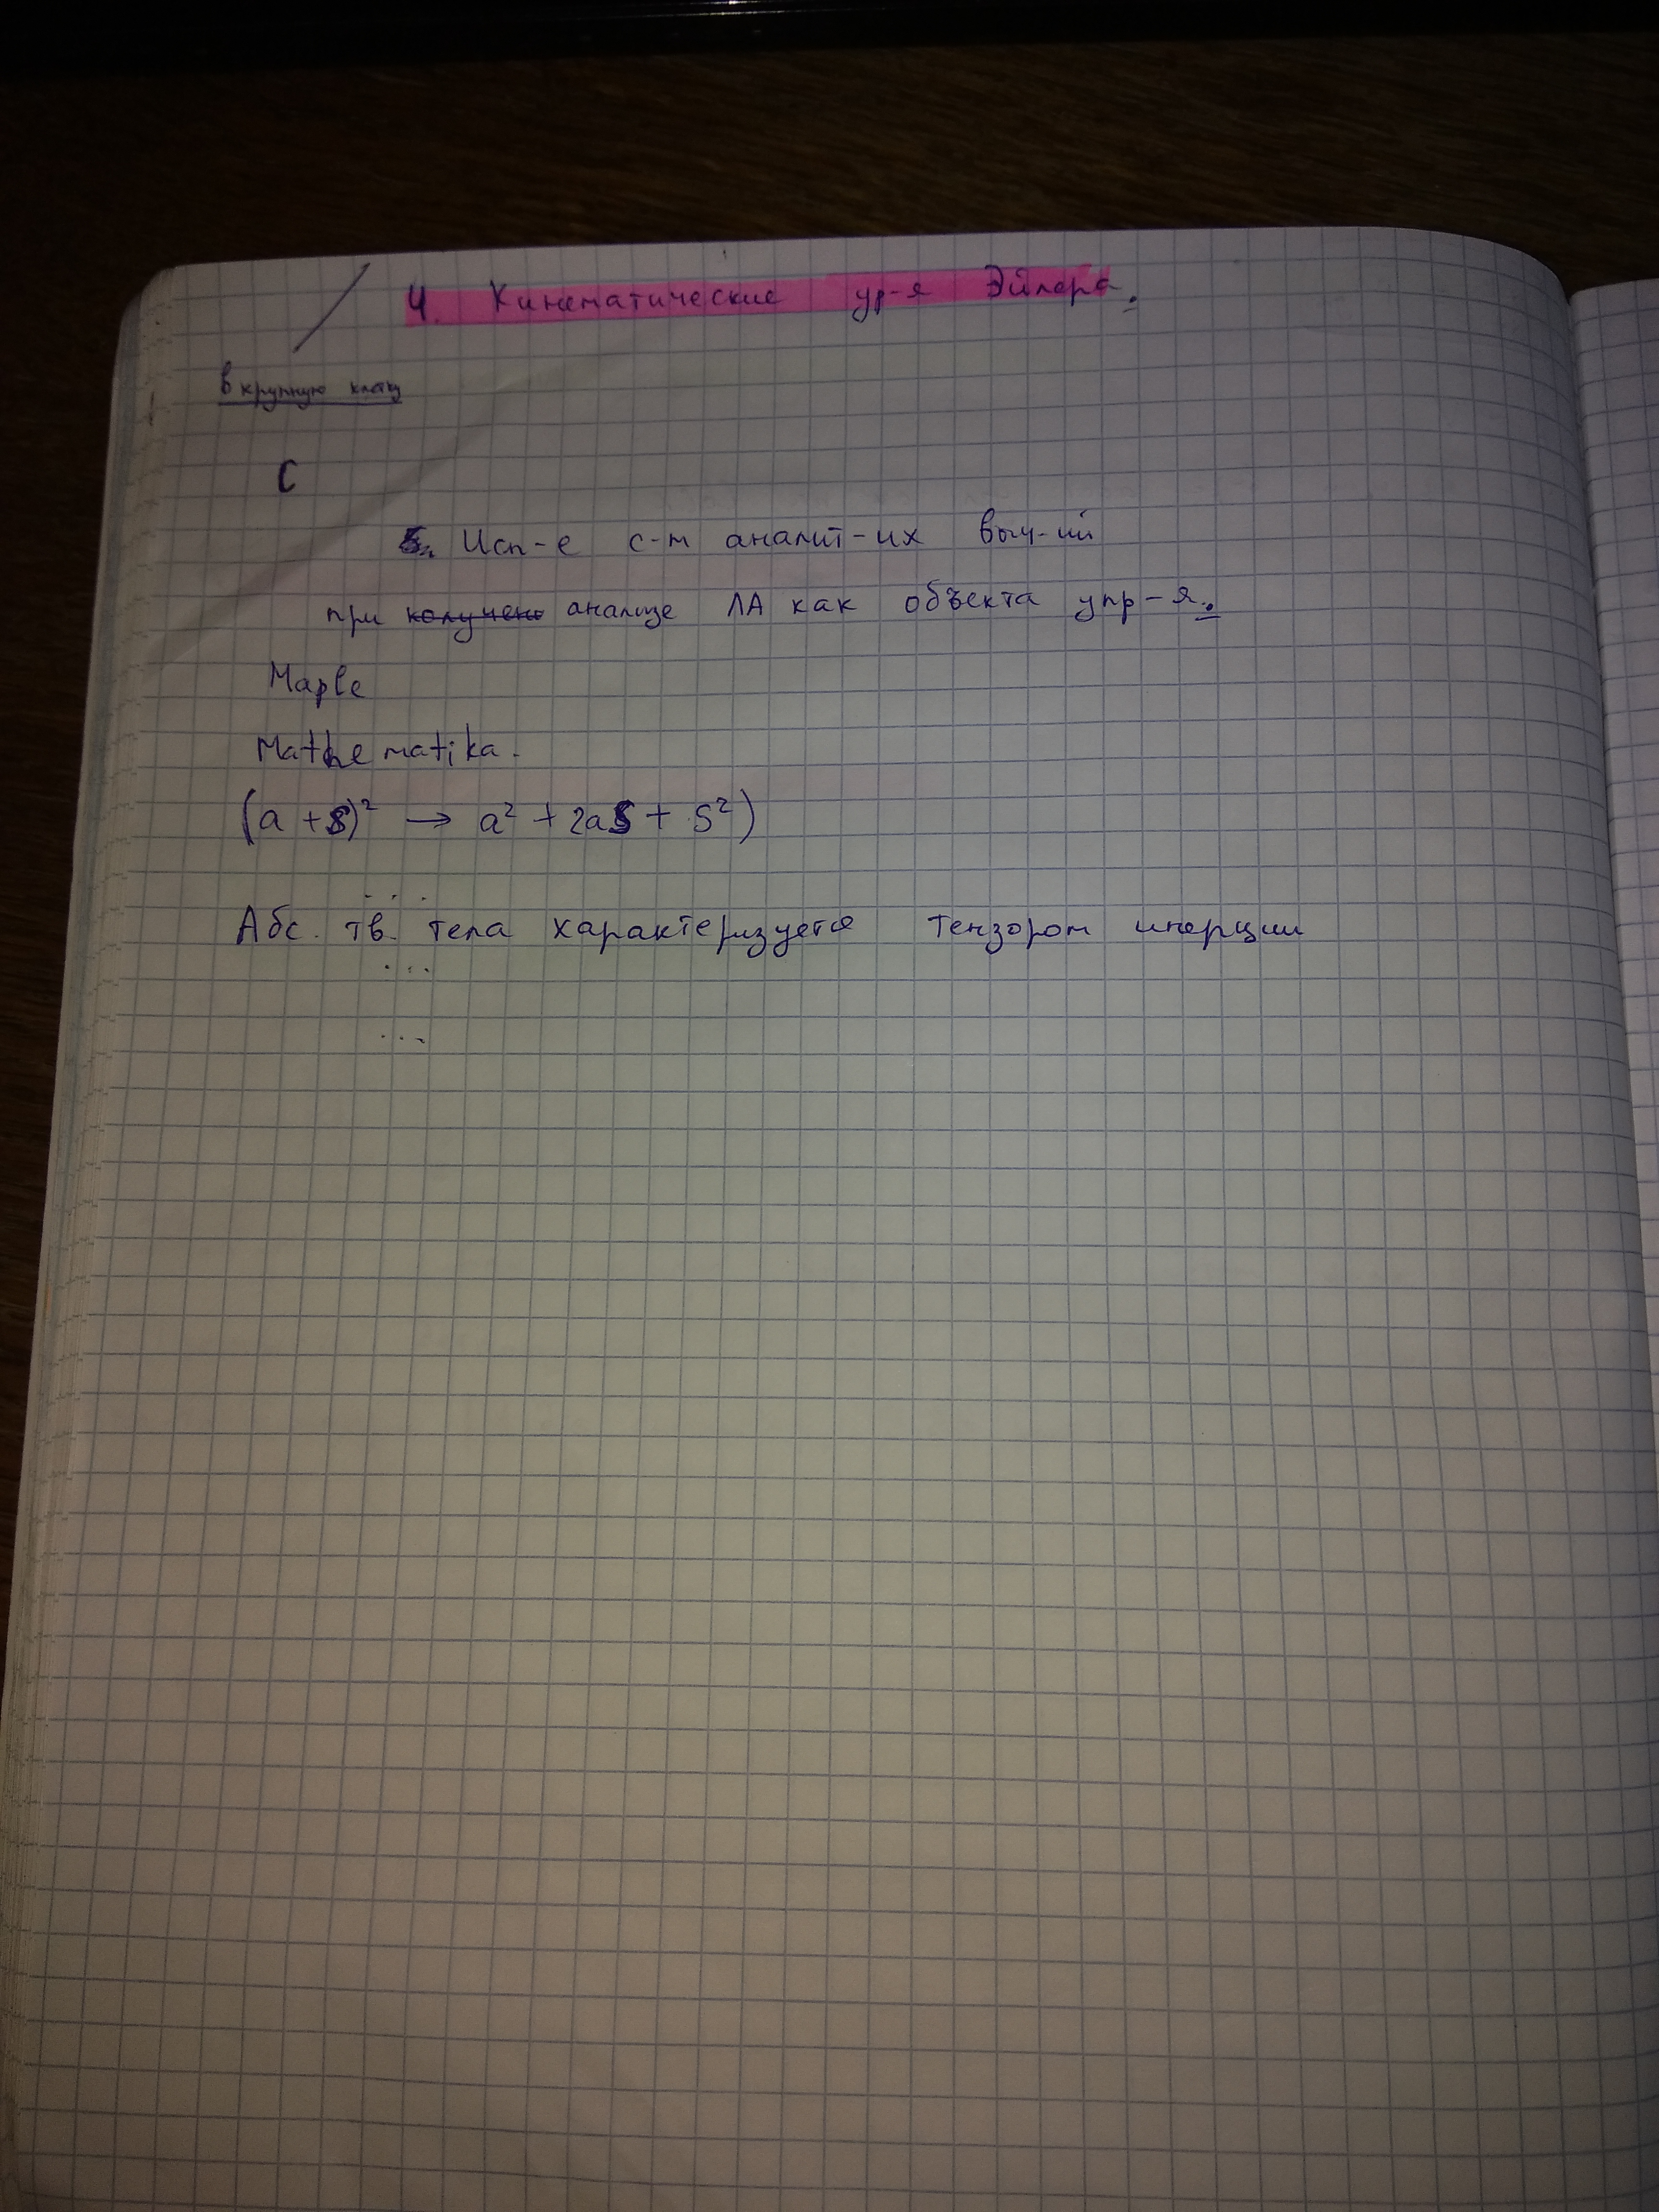 4. Кинематические ур-я Эйлера.
в крупную клетку
С
5. Исп-е с-м аналит-их выч-ий
при получено анализе ЛА как объекта упр-я.
Maple
Mathematika.
(a + S)² → a² + 2aS + S²)
Абс. тв. тела характеризуется тензором инерции
...
...